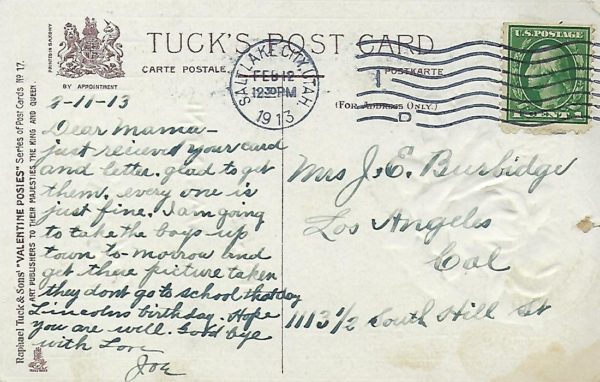 TUCK'S POST CARD
CARTE POSTALE
POSTKARTE
(FOR ADDRESS ONLY.)
BY APPOINTMENT
PRINTED IN SAXONY
Raphael Tuck & Sons' "VALENTINE POSIES" Series of Post Cards Nº 17.
ART PUBLISHERS TO THEIR MAJESTIES THE KING AND QUEEN.
SALT LAKE CITY, UTAH
FEB 12
1230PM
1913
1
D
U.S. POSTAGE
1 CENT 1
2-11-13
Dear Mama -
just recieved your card
and letter. glad to get
them. every one is
just fine. I am going
to take the boys up
town to-morrow and
get there picture taken
they dont go to school that day
Lincolns birthday. Hope
you are will. Good bye
with Love
Joe
Mrs J. E. Burbidge
Los Angeles
Cal
1113 1/2 South Hill St